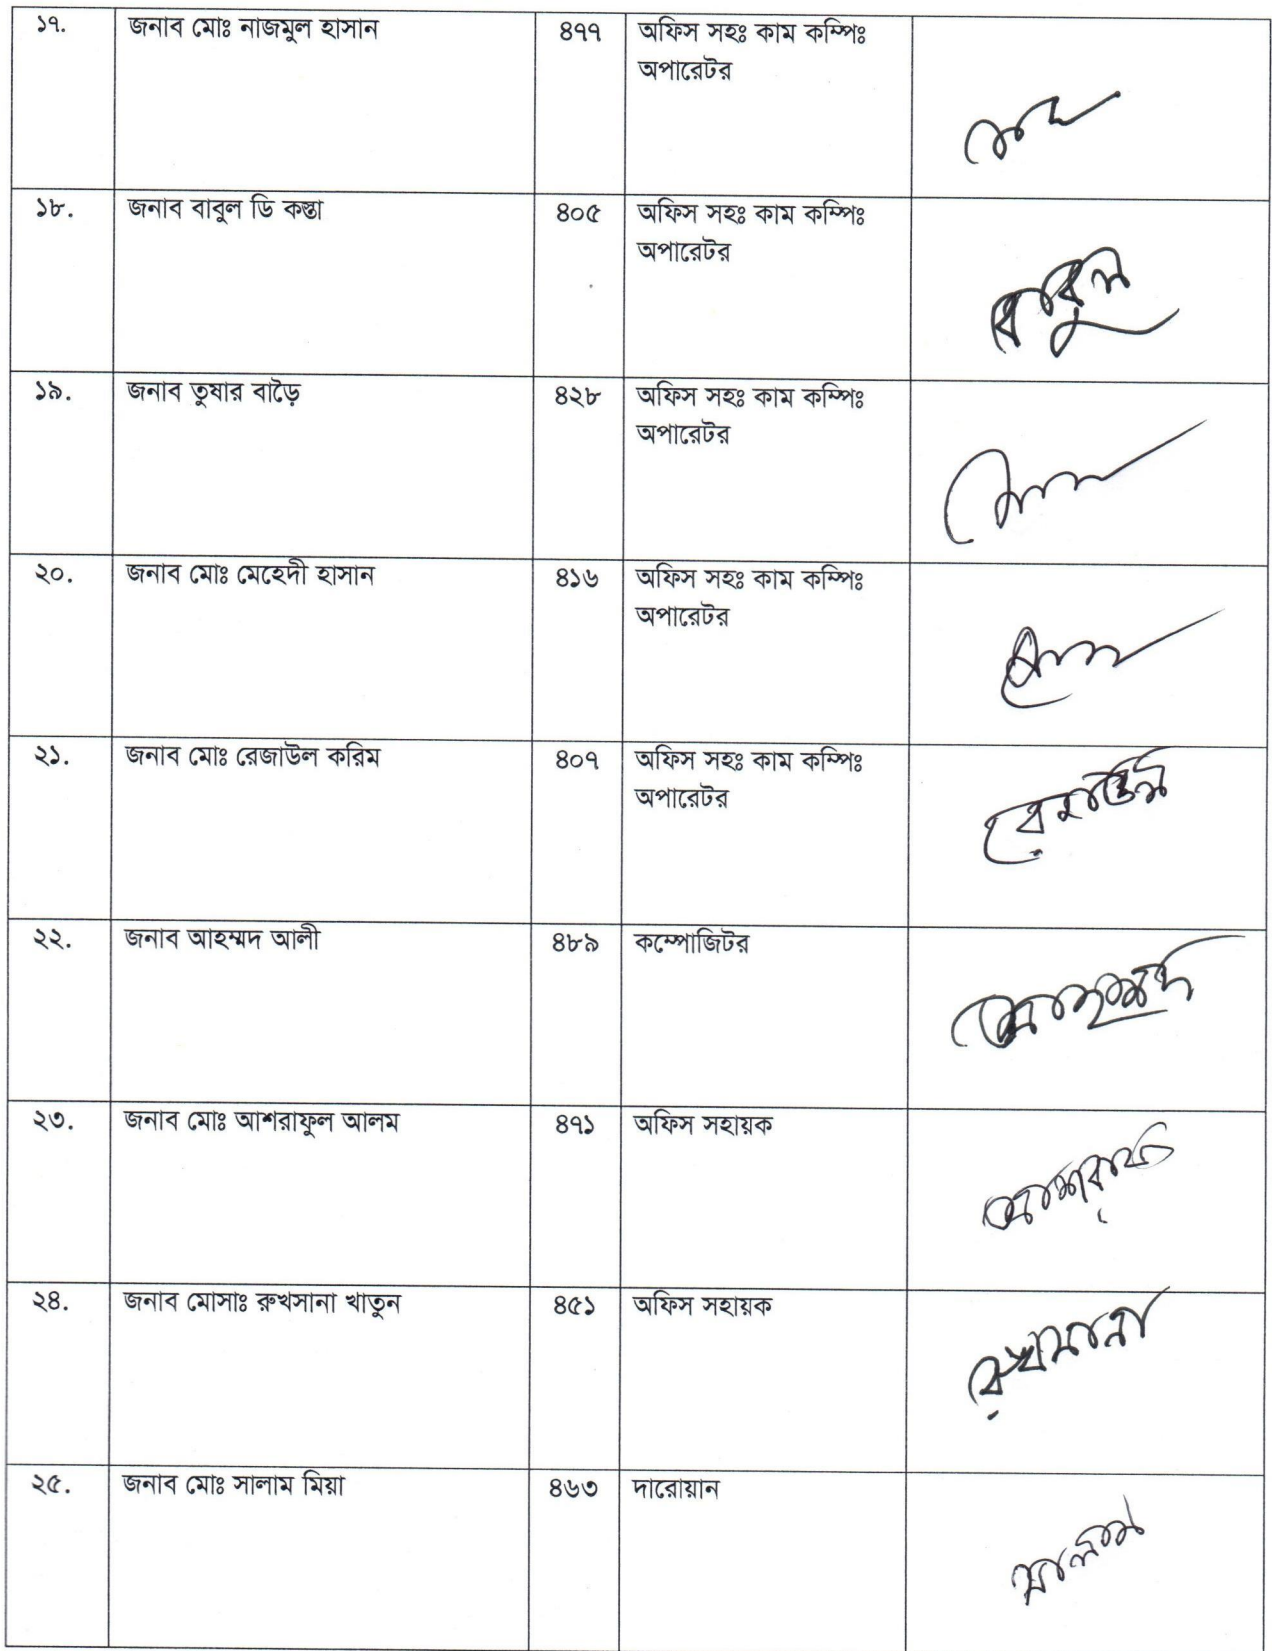 ১৭. জনাব মোঃ নাজমুল হাসান ৪৭৭ অফিস সহঃ কাম কম্পিঃ
অপারেটর
১৮. জনাব বাবুল ডি কস্তা ৪০৫ অফিস সহঃ কাম কম্পিঃ
অপারেটর
বাবুল
১৯. জনাব তুষার বাড়ৈ ৪২৮ অফিস সহঃ কাম কম্পিঃ
অপারেটর
২০. জনাব মোঃ মেহেদী হাসান ৪১৬ অফিস সহঃ কাম কম্পিঃ
অপারেটর
২১. জনাব মোঃ রেজাউল করিম ৪০৭ অফিস সহঃ কাম কম্পিঃ
অপারেটর
রেজাউল
২২. জনাব আহম্মদ আলী ৪৮৯ কম্পোজিটর
আহম্মদ
২৩. জনাব মোঃ আশরাফুল আলম ৪৭১ অফিস সহায়ক
২৪. জনাব মোসাঃ রুখসানা খাতুন ৪৫১ অফিস সহায়ক
রুখসানা
২৫. জনাব মোঃ সালাম মিয়া ৪৬৩ দারোয়ান
সালাম